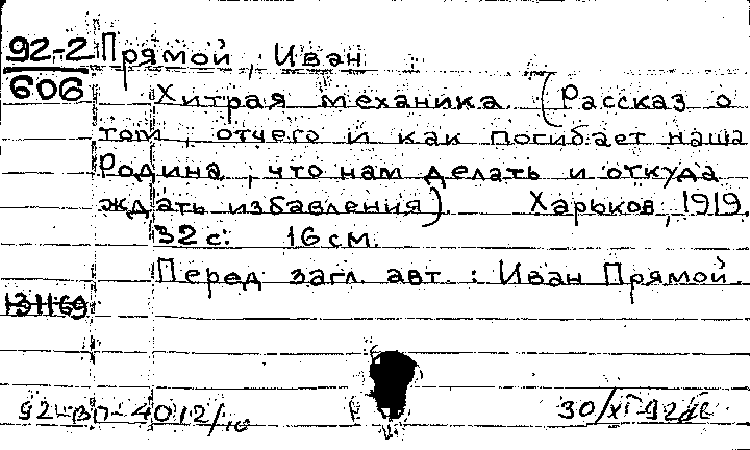 92-2 Прямой, Иван
606 Хитрая механика. (Рассказ о
том, отчего и как погибает наша
Родина, что нам делать и откуда
ждать избавления). Харьков, 1919.
32 с. 16 см.
Перед загл. авт.: Иван Прямой.
131169
92-ВП-4012/10 30/XI-92